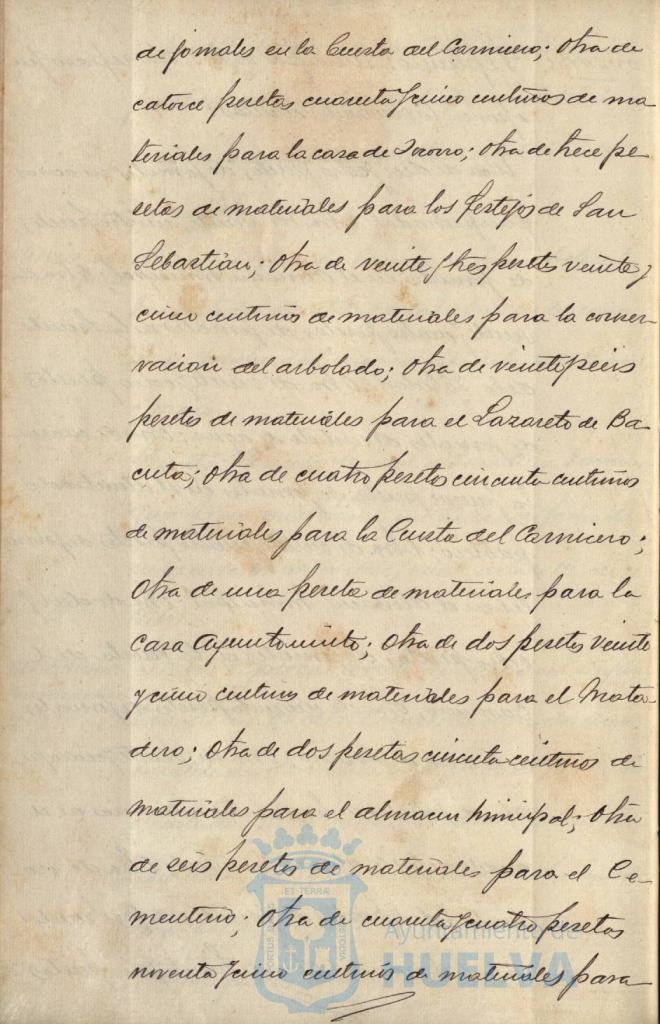 de jornales en la Cuesta del Carnicero; Otra de
catorce pesetas cuarenta y cinco centimos de ma-
teriales para la casa de Socorro; Otra de trece pe
setas de materiales para los festejos de San
Sebastian; Otra de veinte y tres pesetas veinte y
cinco centimos de materiales para la conser-
vacion del arbolado; Otra de veinte y seis
pesetas de materiales para el Lazareto de Ba-
cuta; Otra de cuatro pesetas cincuenta centimos
de materiales para la Cuesta del Carnicero;
Otra de una peseta de materiales para la
casa Ayuntamiento; Otra de dos pesetas veinte
y cinco centimos de materiales para el Mata-
dero; Otra de dos pesetas cincuenta centimos de
materiales para el almacen municipal; Otra
de seis pesetas de materiales para el Ce-
menterio; Otra de cuarenta y cuatro pesetas
noventa y cinco centimos de materiales para
ET TERRÆ
PORTUS
CUSTODIA
Ayuntamiento de
HUELVA